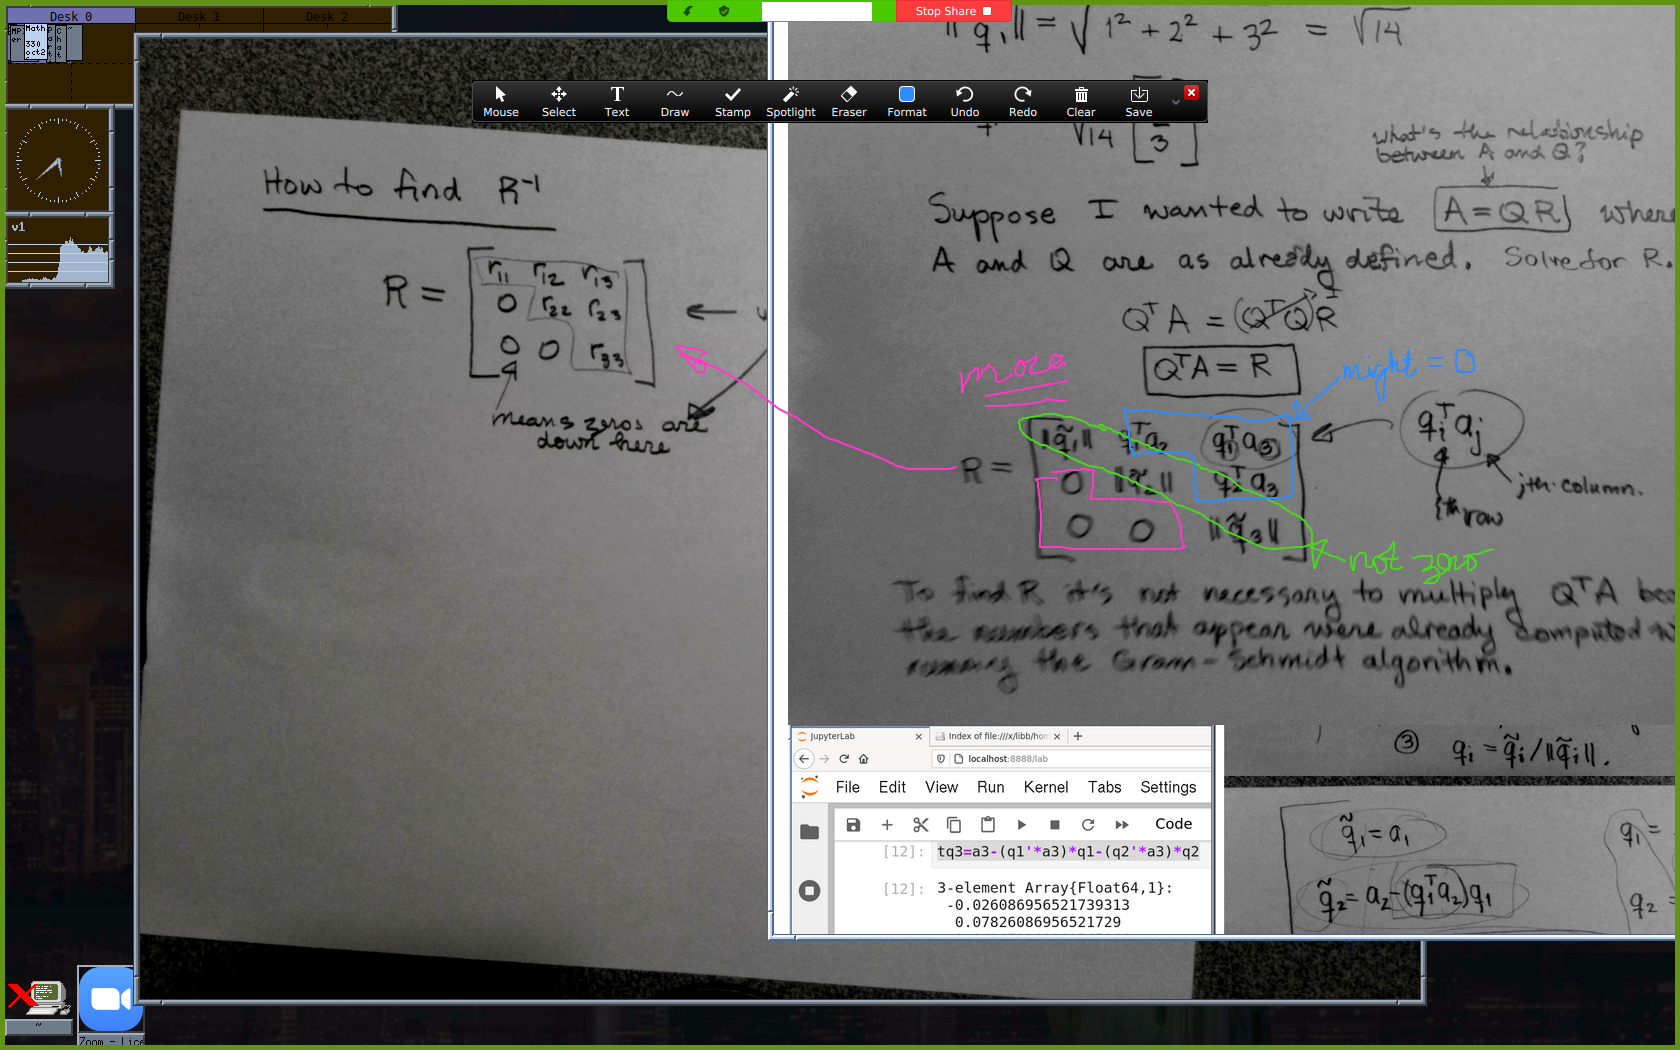 Desk 0 Desk 1 Desk 2
Stop Share
Mouse Select Text Draw Stamp Spotlight Eraser Format Undo Redo Clear Save
v1
How to find R⁻¹
R = [ r₁₁ r₁₂ r₁₃
0 r₂₂ r₂₃
0 0 r₃₃ ]
means zeros are
down here
||q̃₁|| = √1² + 2² + 3² = √14
√14 3
what's the relationship
between A and Q?
Suppose I wanted to write A = QR where
A and Q are as already defined. Solve for R.
QᵀA = (QᵀQ)R
I
QᵀA = R
more
might = 0
R = [ ||q̃₁|| q₁ᵀa₂ q₁ᵀa₃
0 ||q̃₂|| q₂ᵀa₃
0 0 ||q̃₃|| ]
qᵢᵀaⱼ
jth column.
ith row
not zero
To find R it's not necessary to multiply QᵀA
the numbers that appear were already computed
running the Gram-Schmidt algorithm.
JupyterLab
Index of file:///x/libb/hom
localhost:8888/lab
File Edit View Run Kernel Tabs Settings
Code
[12]: tq3=a3-(q1'*a3)*q1-(q2'*a3)*q2
[12]: 3-element Array{Float64,1}:
-0.026086956521739313
0.07826086956521729
③ qᵢ = q̃ᵢ/||q̃ᵢ||.
q̃₁ = a₁
q₁ =
q̃₂ = a₂-(q₁ᵀa₂)q₁
q₂ =
~
Zoom - Lice